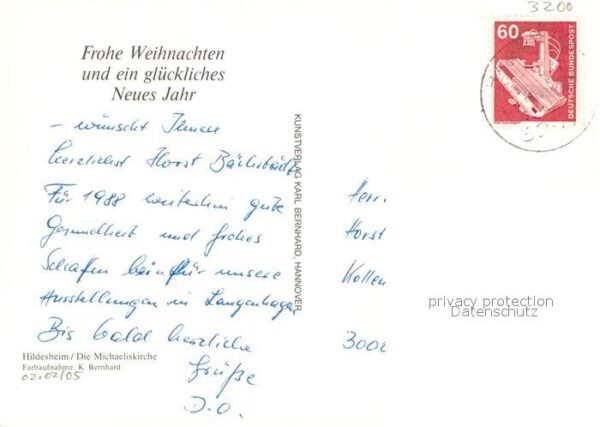 3200
60
DEUTSCHE BUNDESPOST
Frohe Weihnachten
und ein glückliches
Neues Jahr
– wünscht Ihnen
herzlichst Horst
Für 1988 weiterhin gute
Gesundheit und frohes
Schaffen für unsere
Ausstellungen in Langenhagen
Bis bald herzliche
Grüße
D.O.
Hildesheim / Die Michaeliskirche
Farbaufnahme: K. Bernhard
02.02/05
KUNSTVERLAG KARL BERNHARD, HANNOVER
Herr
Horst
Kollen
3000
privacy protection
Datenschutz